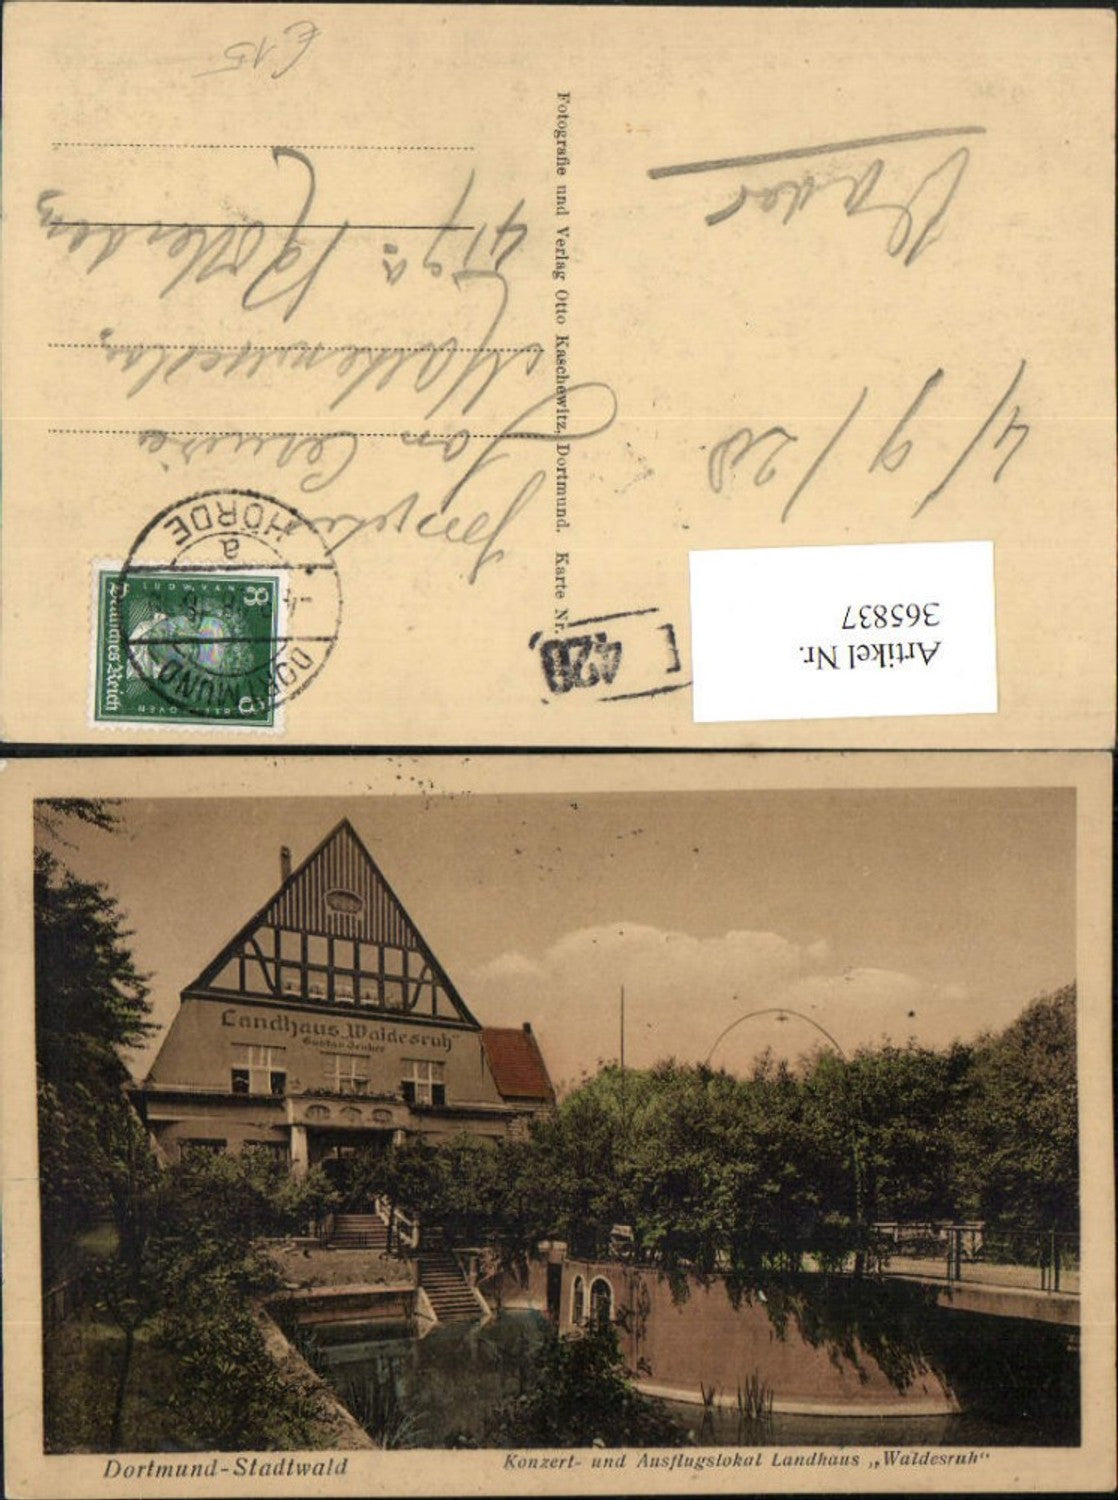 €15
Jan
419a
4/9/28
Vader
Fotografie und Verlag Otto Kaschewitz, Dortmund. Karte Nr.
428
Artikel Nr.
365837
DORTMUND
HÖRDE
a
8
8
Deutsches Reich
BEETHOVEN
Landhaus „Waldesruh“
Dortmund-Stadtwald
Konzert- und Ausflugslokal Landhaus „Waldesruh“